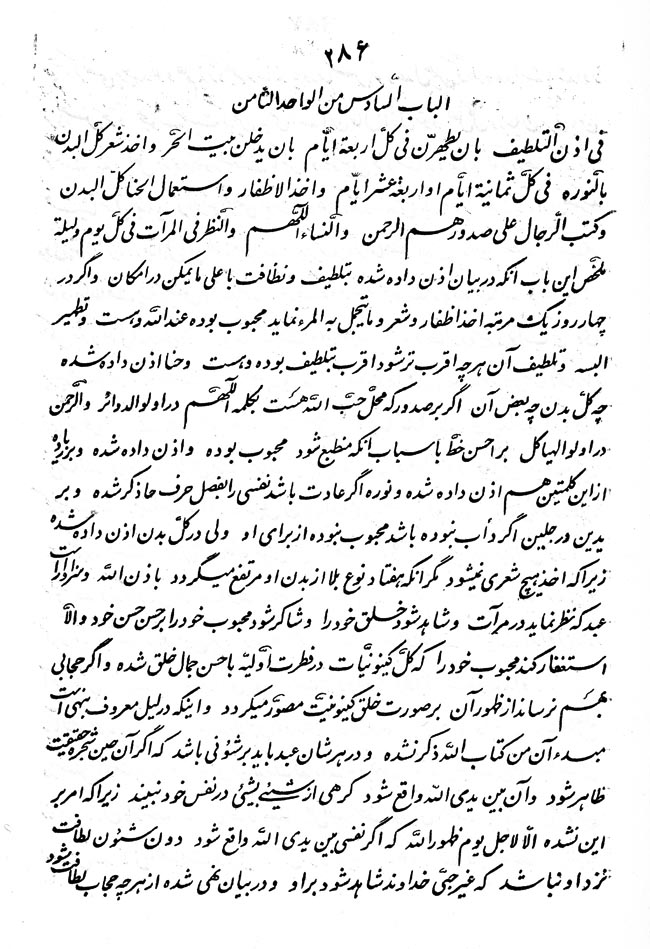 ۲۸۶
الباب السادس من الواحد الثامن
فی اذن التلطیف بان یطهرن فی کل اربعة ایام بان یدخلن بیت الحر و اخذ شعر کل البدن
بالنوره فی کل ثمانیة ایام او اربعة عشر ایام و اخذ الاظفار و استعمال الحنا کل البدن
و کتب الرجال علی صدورهم الرحمن والنساء اللهم والنظر فی المرآت فی کل یوم ولیلة
ملخص این باب انکه در بیان اذن داده شده بتلطیف و نظافت با علی ما یمکن در امکان و اگر در
چهار روز یک مرتبه اخذ اظفار و شعر و ما یتجمل به المرء نماید محبوب بوده عند الله و هست و تطهیر
البسه و تلطیف آن هر چه اقرب تر شود اقرب بتلطیف بوده و هست و حنا اذن داده شده
چه کل بدن چه بعض آن اگر بر صدور که محل حب الله هست بکلمه اللهم در اولو الدوائر و الرحمن
در اولو الهیاکل بر احسن خط با سباب انکه منطبع شود محبوب بوده و اذن داده شده و بر زیاده
از این کلمتین هم اذن داده شده و نوره اگر عادت باشد نفسی را لفصل حرف حا ذکر شده و بر
یدین و رجلین اگر دأب نبوده باشد محبوب نبوده از برای او ولی در کل بدن اذن داده شده
زیرا که اخذ هیچ شعری نمیشود مگر انکه هفتاد نوع بلا از بدن او مرتفع میگردد باذن الله و سزاوار است
عبد که نظر نماید در مرآت و شاهد شود خلق خود را و شاکر شود محبوب خود را بر حسن خود و الا
استغفار کند محبوب خود را که کل کینونیات در فطرت اولیه با حسن جمال خلق شده و اگر حجابی
بهم نرساند از ظهور آن بر صورت خلق کینونیت مصور میگردد و اینکه در لیل معروف بنهی است
مبدء آن من کتاب الله ذکر نشده و در هر شان عبد باید بر شئونی باشد که اگر آن حین شجره حقیقت
ظاهر شود و آن بین یدی الله واقع شود کرهی از شیئی بشیئی در نفس خود نبیند زیرا که امر بر
این نشده الا لاجل یوم ظهور الله که اگر نفسی بین یدی الله واقع شود دون شئون لطافت
نزد او نباشد که غیر حبی خداوند شاهد شود بر او و در بیان نهی شده از هر چه حجاب لطافت شود